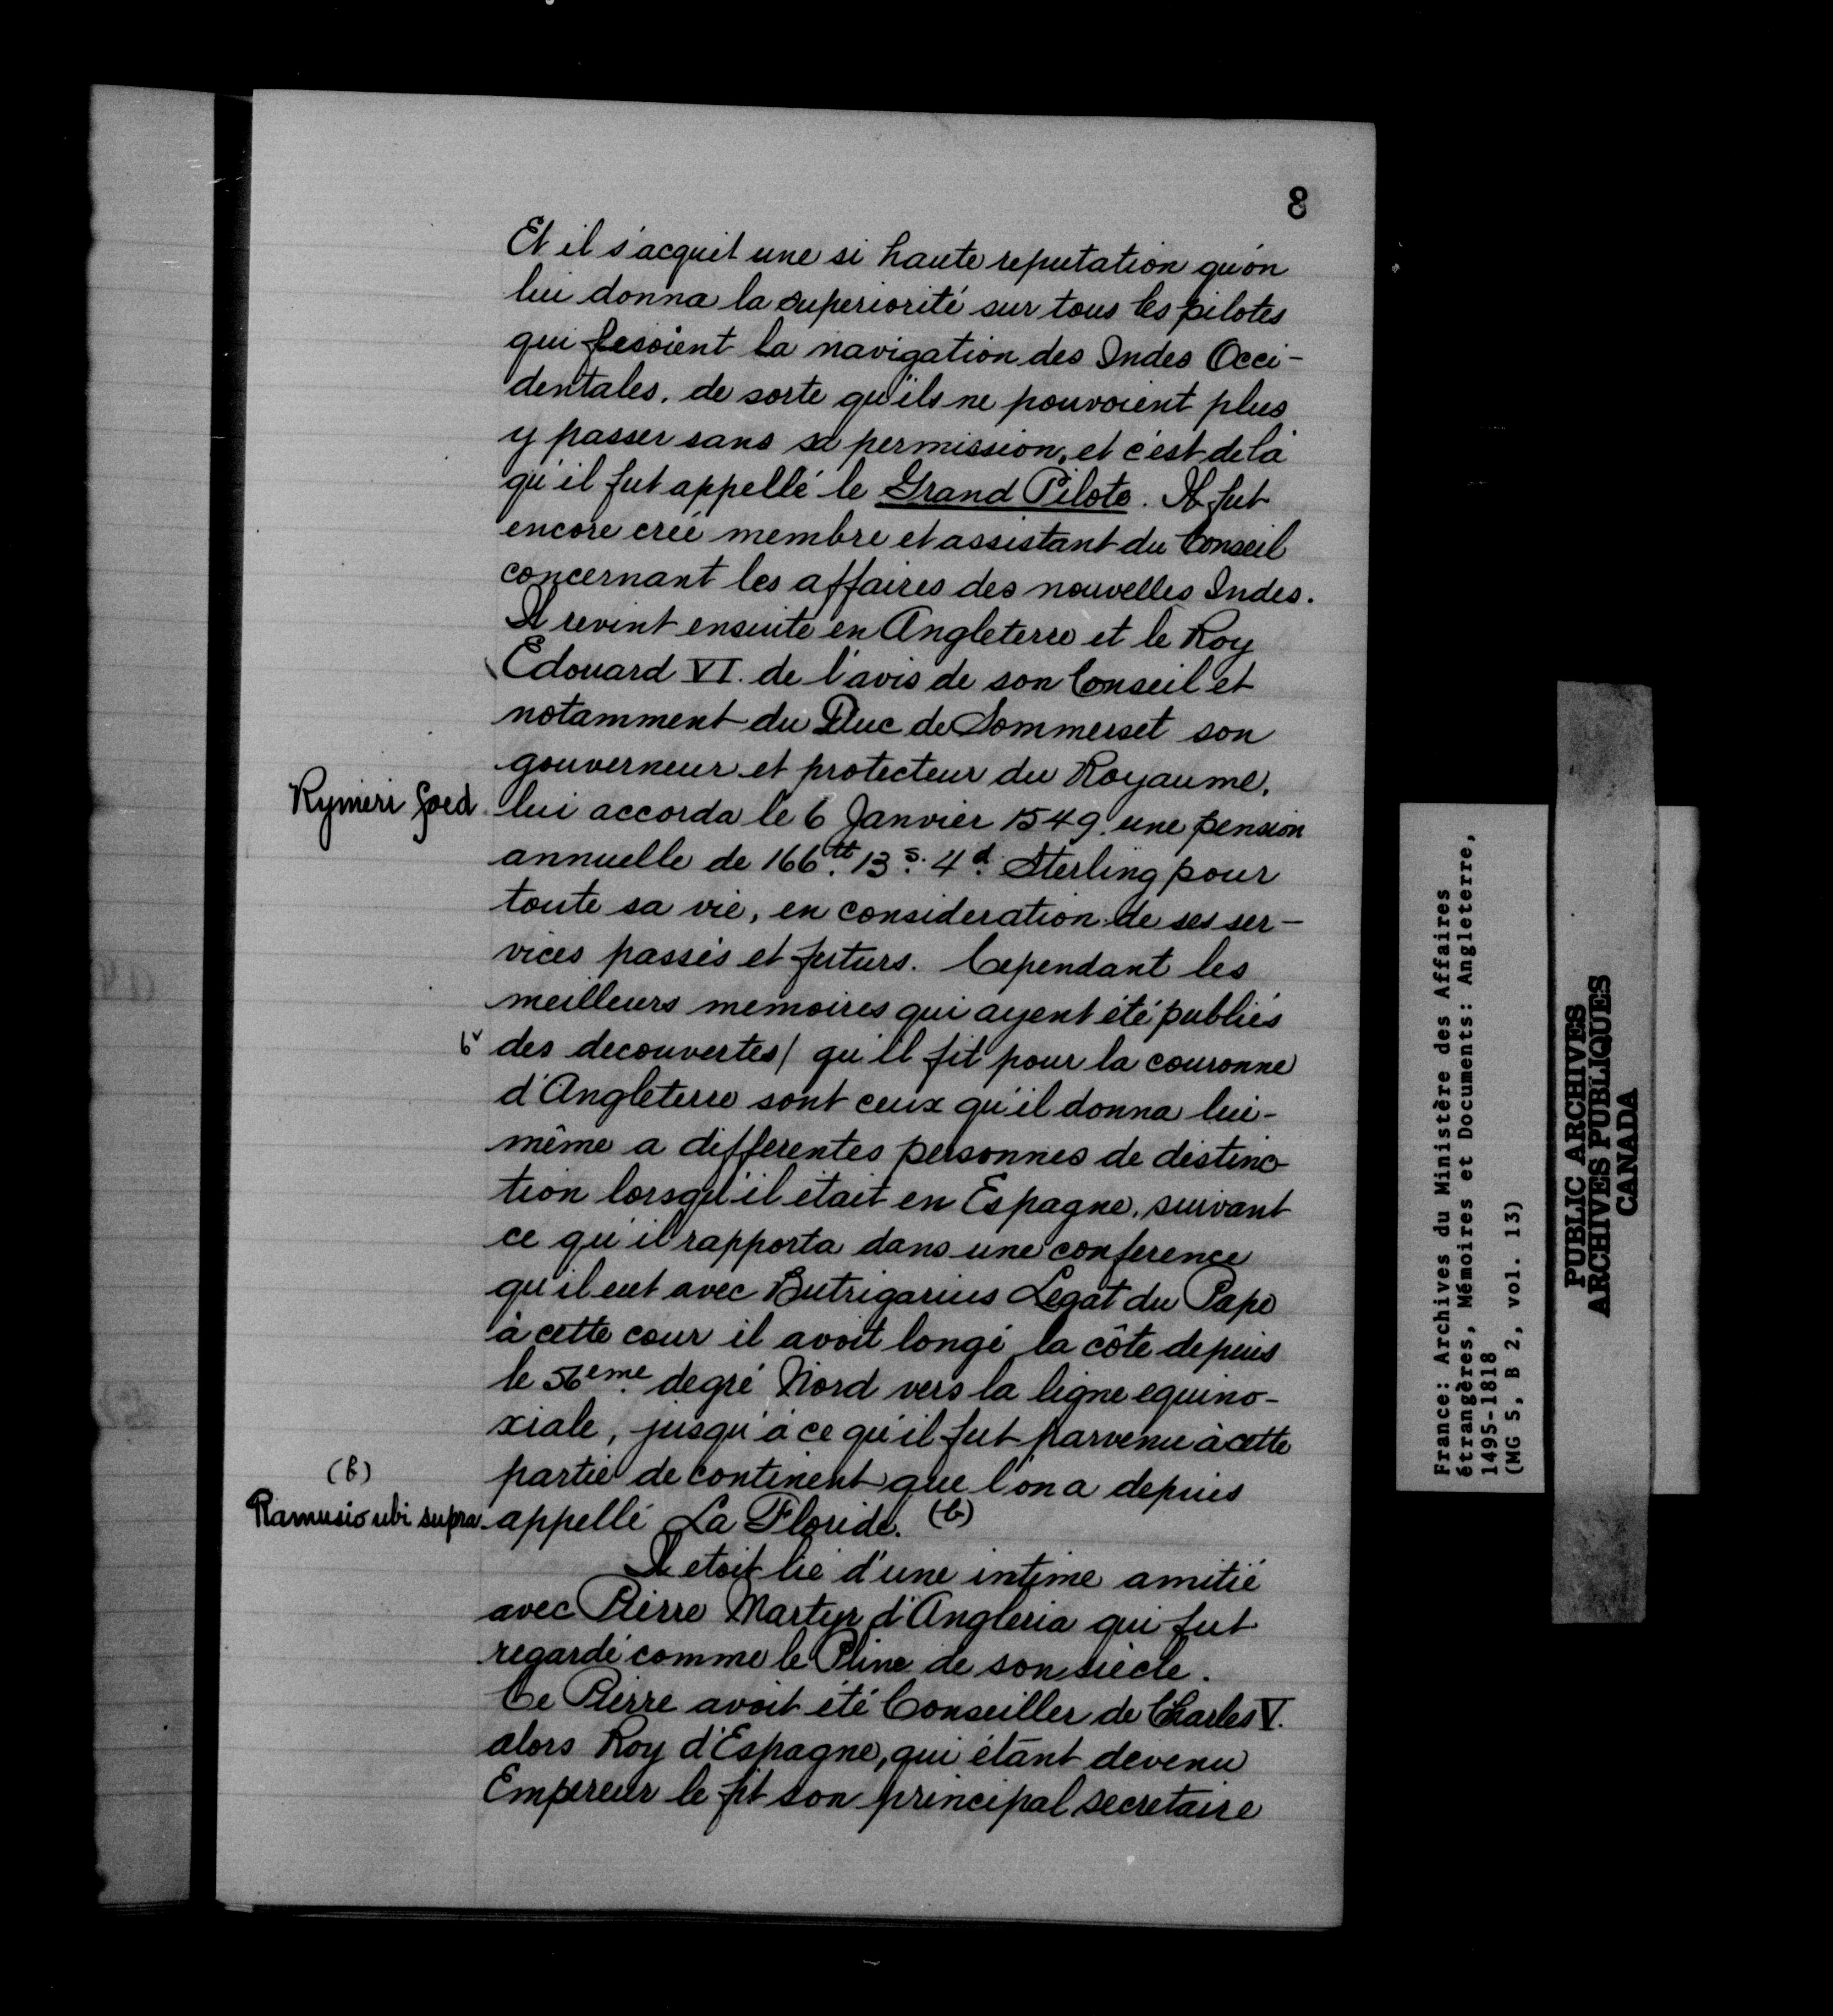 8
Et il s'acquit une si haute reputation qu'on
lui donna la superiorité sur tous les pilotes
qui fesoient la navigation des Indes Occi-
dentales, de sorte qu'ils ne pouvoient plus
y passer sans sa permission, et c'est de là
qu'il fut appellé le Grand Pilote. Il fut
encore créé membre et assistant du Conseil
concernant les affaires des nouvelles Indes.
Il revint ensuite en Angleterre et le Roy
Edouard VI. de l'avis de son Conseil et
notamment du Duc de Sommerset son
gouverneur et protecteur du Royaume,
Rymeri foed. lui accorda le 6 Janvier 1549. une pension
annuelle de 166.tt 13.s 4.d Sterling pour
toute sa vie, en consideration de ses ser-
vices passés et futurs. Cependant les
meilleurs memoires qui ayent été publiés
6v des decouvertes / qu'il fit pour la couronne
d'Angleterre sont ceux qu'il donna lui-
même a differentes personnes de distinc-
tion lorsqu'il était en Espagne, suivant
ce qu'il rapporta dans une conference
qu'il eut avec Butrigarius Legat du Pape
à cette cour il avoit longé la côte depuis
le 56eme. degré Nord vers la ligne equino-
xiale, jusqu'à ce qu'il fut parvenu à cette
partie de continent que l'on a depuis
appellé La Floride. (b)
(b)
Ramusio ubi supra
Il etoit lié d'une intime amitié
avec Pierre Martyr d'Angleria qui fut
regardé comme le Pline de son siècle.
Ce Pierre avoit été Conseiller de Charles V.
alors Roy d'Espagne, qui étant devenu
Empereur le fit son principal secretaire
France: Archives du Ministère des Affaires
étrangères, Mémoires et Documents: Angleterre,
1495-1818
(MG 5, B 2, vol. 13)
PUBLIC ARCHIVES
ARCHIVES PUBLIQUES
CANADA